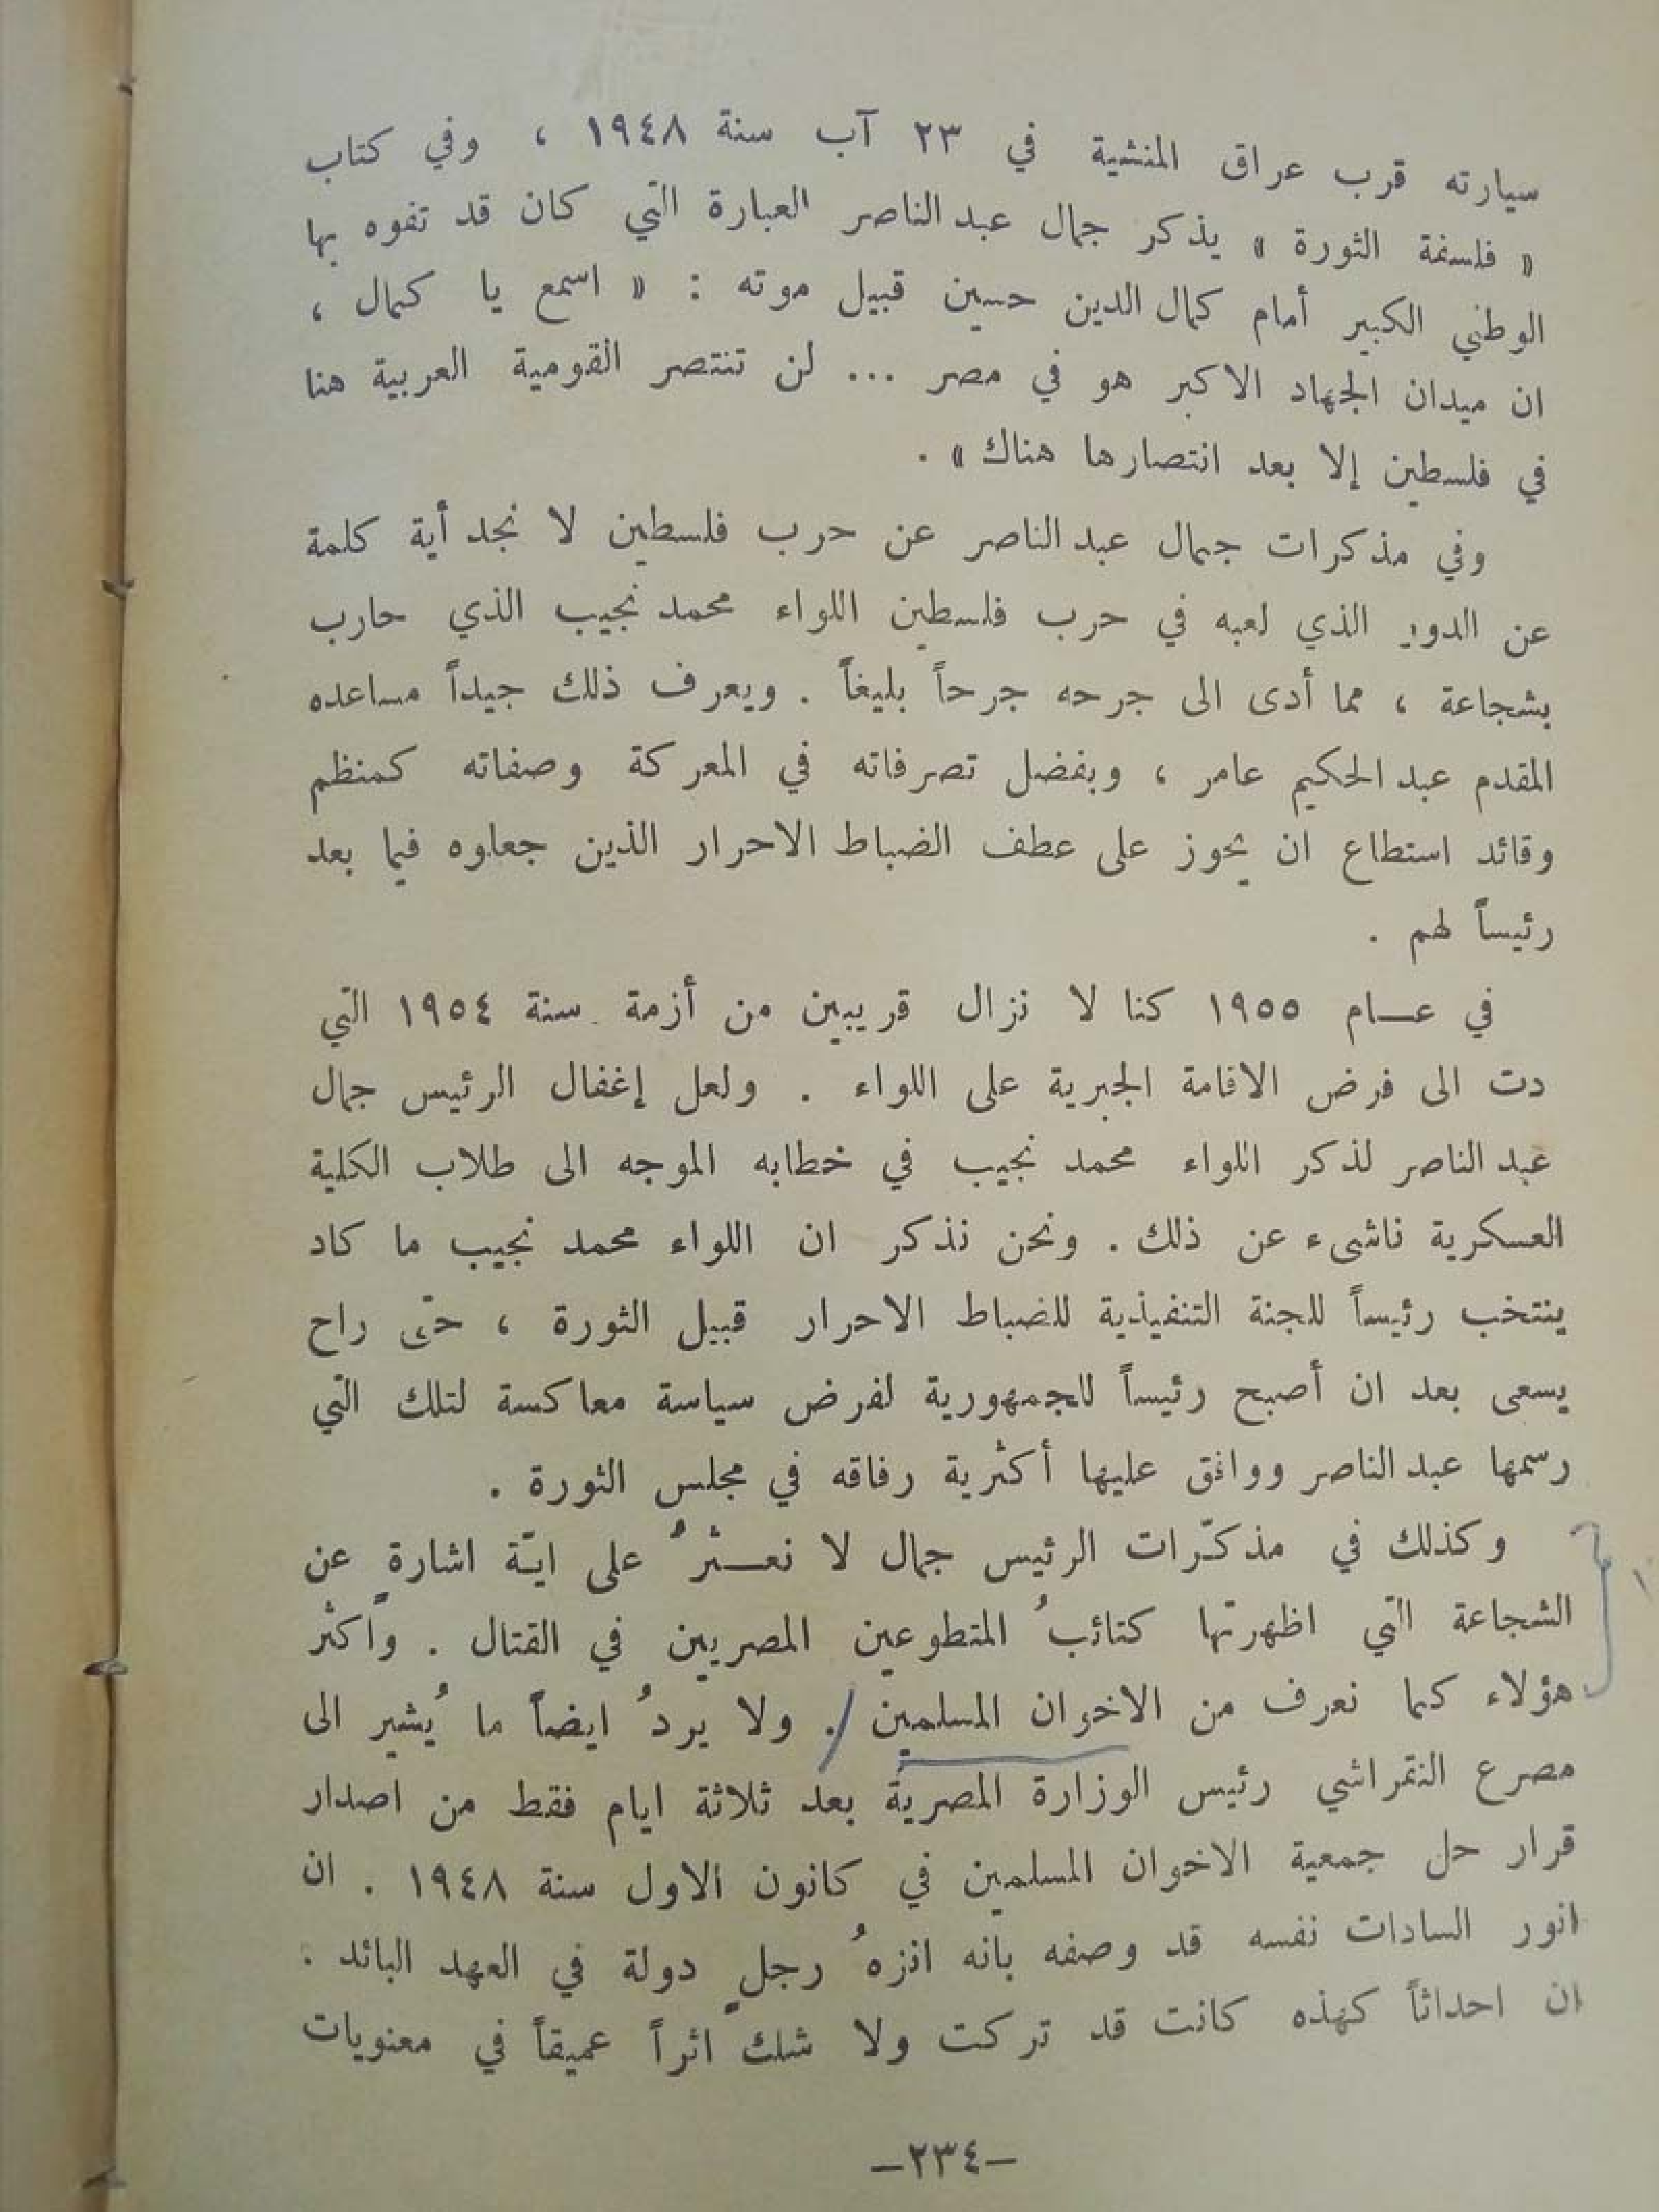 سيارته قرب عراق المنشية في ٢٣ آب سنة ١٩٤٨ ، وفي كتاب
« فلسفة الثورة » يذكر جمال عبد الناصر العبارة التي كان قد تفوه بها
الوطني الكبير أمام كمال الدين حسين قبيل موته : « اسمع يا كمال ،
ان ميدان الجهاد الاكبر هو في مصر ... لن تنتصر القومية العربية هنا
في فلسطين إلا بعد انتصارها هناك » .
وفي مذكرات جمال عبد الناصر عن حرب فلسطين لا نجد أية كلمة
عن الدور الذي لعبه في حرب فلسطين اللواء محمد نجيب الذي حارب
بشجاعة ، مما أدى الى جرحه جرحاً بليغاً . ويعرف ذلك جيداً مساعده
المقدم عبد الحكيم عامر ، وبفضل تصرفاته في المعركة وصفاته كمنظم
وقائد استطاع ان يحوز على عطف الضباط الاحرار الذين جعلوه فيما بعد
رئيساً لهم .
في عـــام ١٩٥٥ كنا لا نزال قريبين من أزمة سنة ١٩٥٤ التي
دت الى فرض الاقامة الجبرية على اللواء . ولعل إغفال الرئيس جمال
عبد الناصر لذكر اللواء محمد نجيب في خطابه الموجه الى طلاب الكلية
العسكرية ناشىء عن ذلك . ونحن نذكر ان اللواء محمد نجيب ما كاد
ينتخب رئيساً للجنة التنفيذية للضباط الاحرار قبيل الثورة ، حتى راح
يسعى بعد ان أصبح رئيساً للجمهورية لفرض سياسة معاكسة لتلك التي
رسمها عبد الناصر ووافق عليها أكثرية رفاقه في مجلس الثورة .
وكذلك في مذكّرات الرئيس جمال لا نعـــثرُ على ايـّة اشارةٍ عن
الشجاعة التي اظهرتها كتائبُ المتطوعين المصريين في القتال . وأكثر
هؤلاء كما نعرف من الاخوان المسلمين . ولا يردُ ايضاً ما يُشير الى
مصرع النقراشي رئيس الوزارة المصرية بعد ثلاثة ايام فقط من اصدار
قرار حل جمعية الاخوان المسلمين في كانون الاول سنة ١٩٤٨ . ان
انور السادات نفسه قد وصفه بانه انزهُ رجلٍ دولة في العهد البائد .
ان احداثاً كهذه كانت قد تركت ولا شك اثراً عميقاً في معنويات
–٢٣٤–